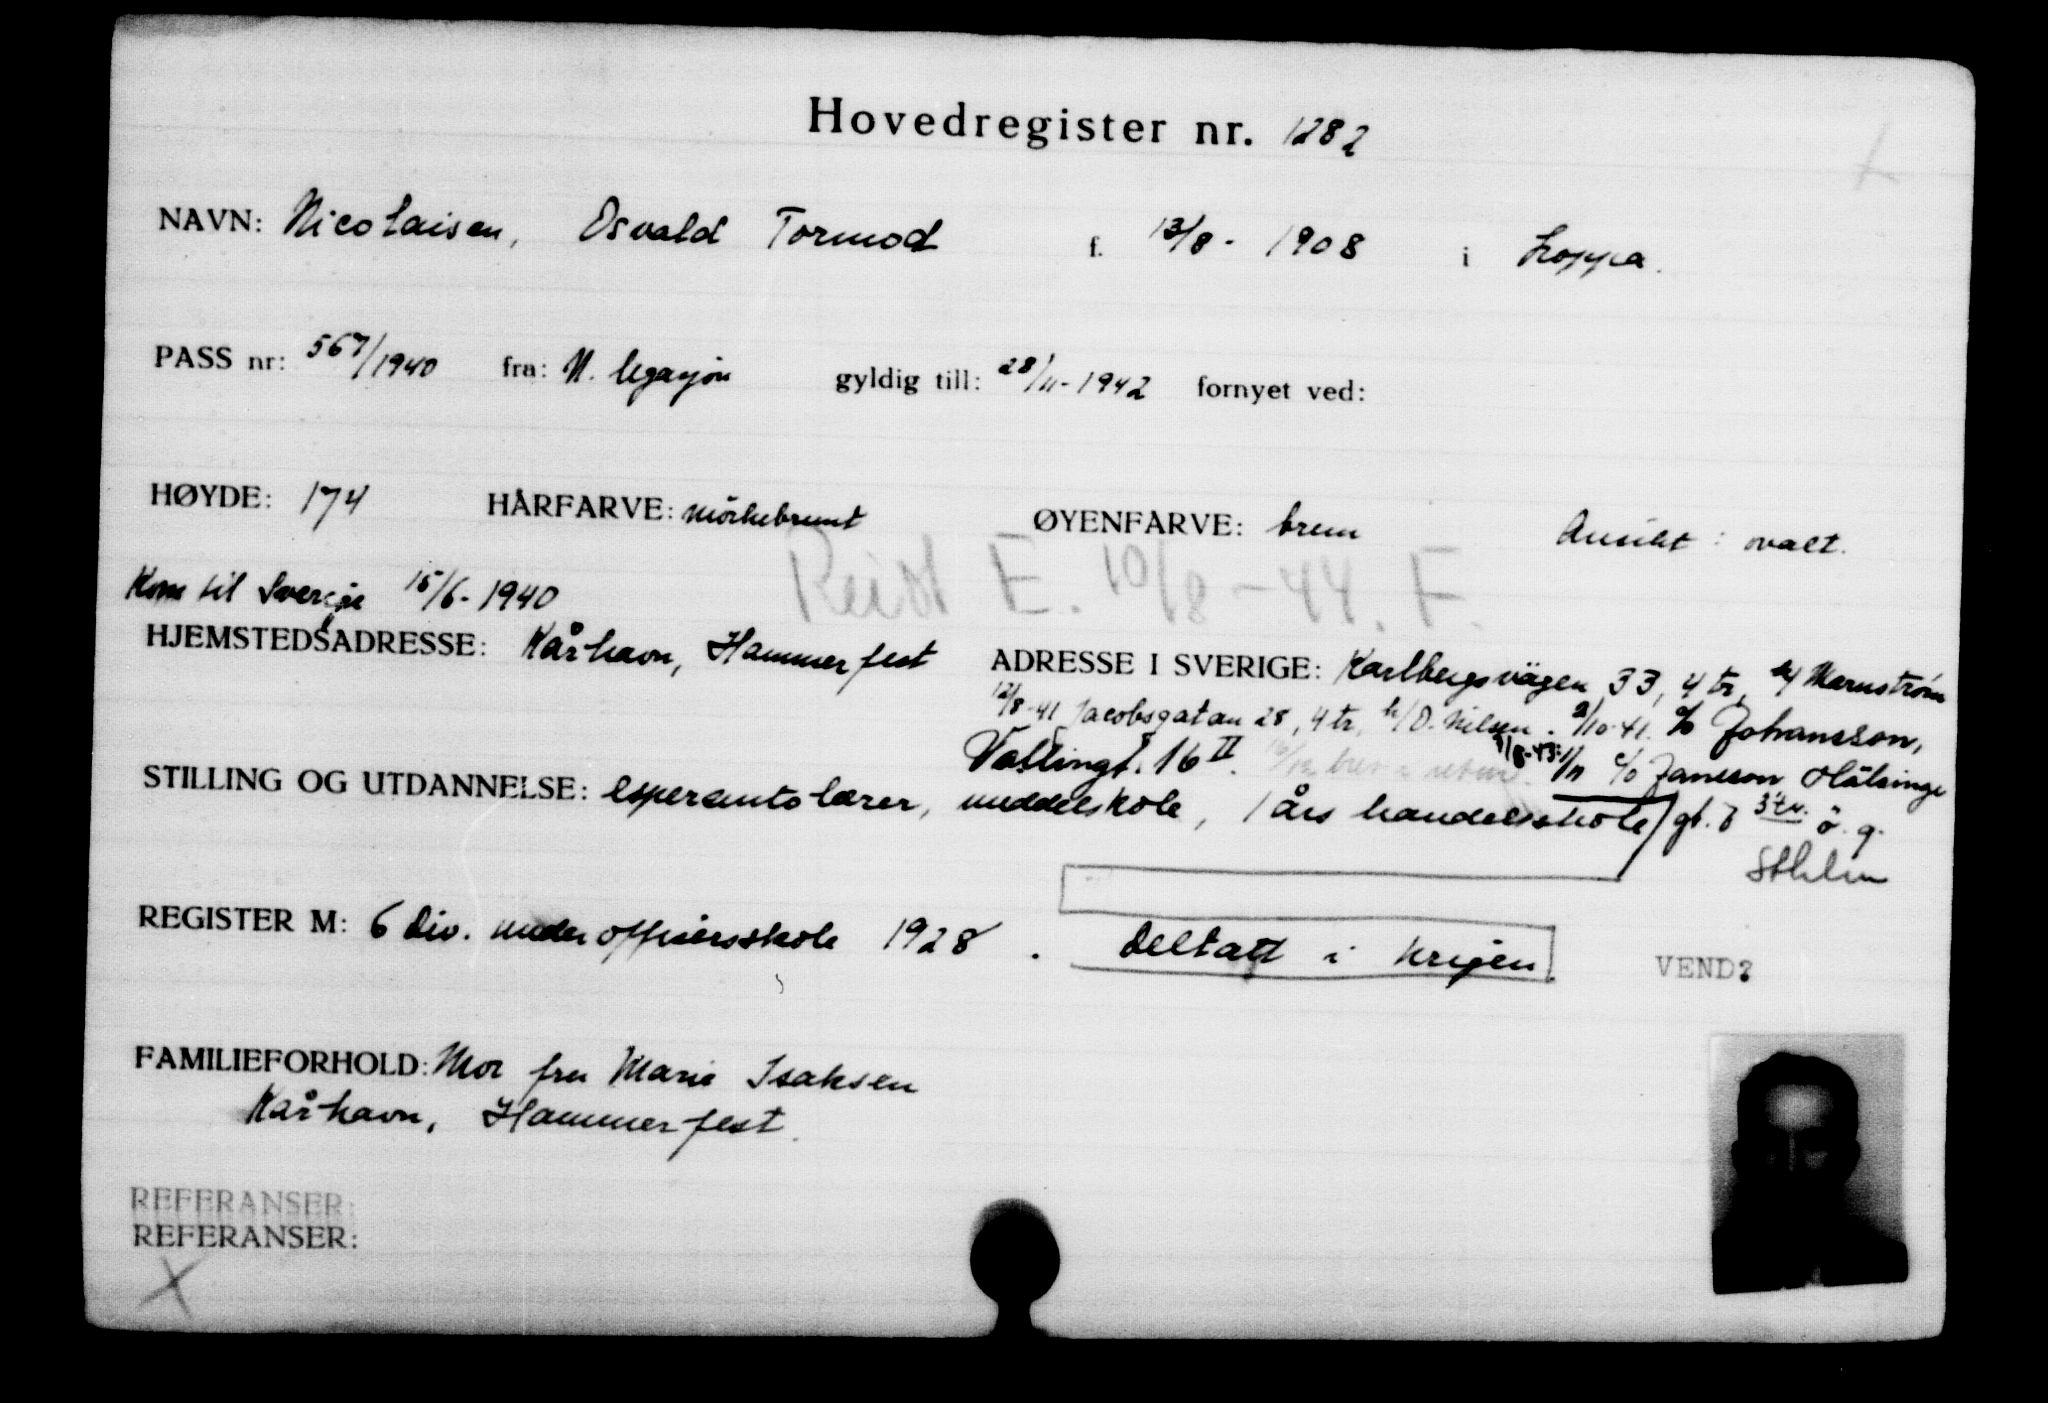 Hovedregister nr. 1282
NAVN: Nicolaisen, Osvald Tormod f. 13/8 - 1908 i Loppa.
PASS nr: 567/1940 fra: N. legasjon gyldig till: 28/11-1942 fornyet ved:
HØYDE: 174 HÅRFARVE: mörkebrunt ØYENFARVE: brun Ansikt : ovalt.
Reist E. 10/8-44. F.
Kom til Sverige 15/6-1940
HJEMSTEDSADRESSE: Kårhavn, Hammerfest ADRESSE I SVERIGE: Karlbergsvägen 33, 4 tr,
12/8-41 Jacobsgatan 28, 4 tr, h/O. Nilsen. 2/10-41. c/o Johansson,
Vallingt. 16 II. 1/11 c/o Jansson Hälsinge
STILLING OG UTDANNELSE: esperantolærer, middelskole, 1 års handelsskole gt. 7 3 tr. ö. g.
Sthlm
REGISTER M: 6 Div. underoffisersskole 1928. Deltatt i krigen VEND?
FAMILIEFORHOLD: Mor fru Marie Isaksen
Kårhavn, Hammerfest.
REFERANSER:
REFERANSER:
X